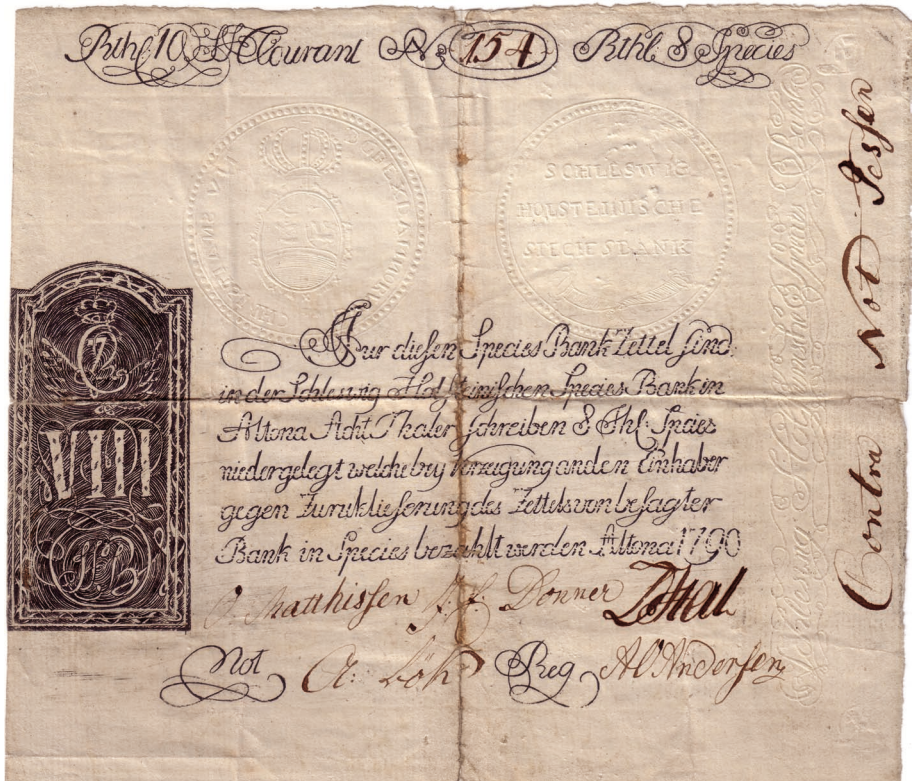 Rthl 10 Courant No. 154 Rthl 8 Species
SCHLESWIG
HOLSTEINISCHE
SPECIESBANK
Für diesen Species Bank Zettel sind
in der Schleswig Holsteinischen Species Bank in
Altona Acht Thaler schreiben 8 Thl. Species
niedergelegt welche bey Vorzeigung an den Einhaber
gegen Zurüklieferung des Zettels von besagter
Bank in Species bezahlt werden Altona 1790
VIII
Matthissen Donner
Not A: Reg Andersen
Contra Not Jessen